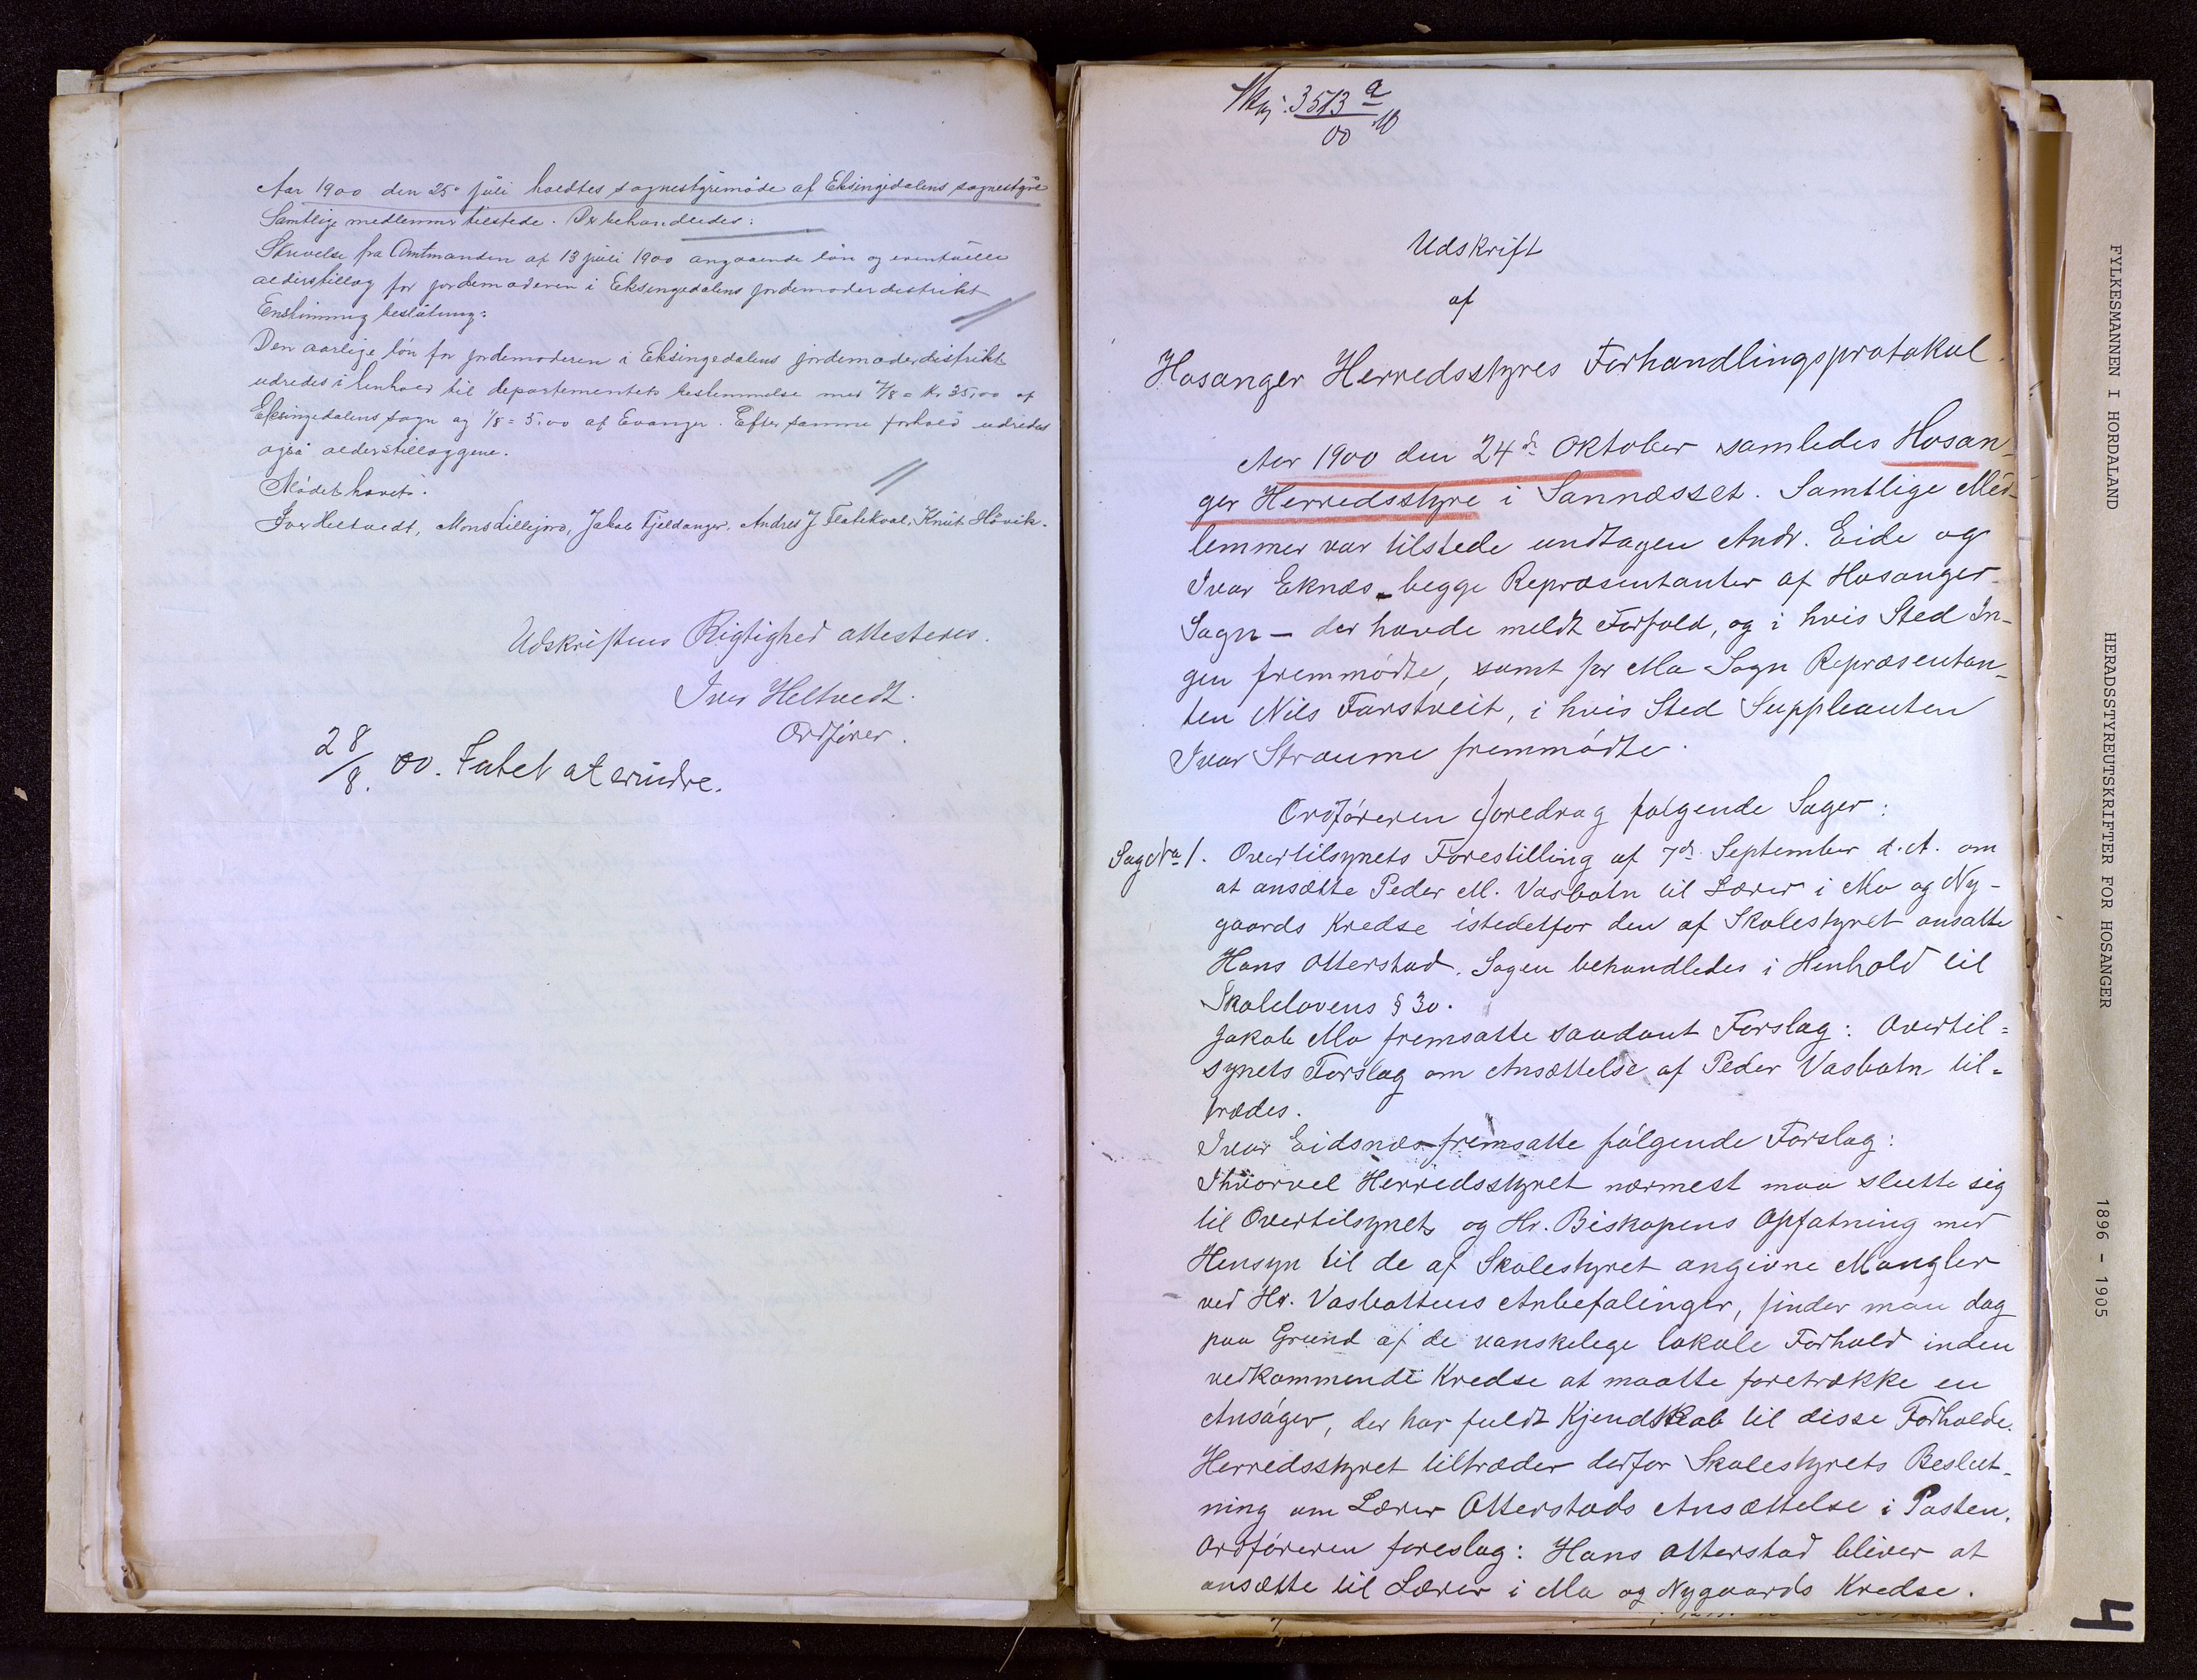 Aar 1900 den 25. juli holdtes sognestyremöde af Eksingedalens sognestyre
Samtlige medlemmer tilstede. Der behandledes:
Skrivelse fra Amtmanden af 13 juli 1900 angaaende løn og eventuelle
alderstillæg for jordemoderen i Eksingedalens jordemoderdistrikt
Enstemmig beslutning:
Den aarlige løn for jordemoderen i Eksingedalens jordemoderdistrikt
udredes i henhold til departementets bestemmelse med 7/8 = kr 35,00 af
Eksingedalens sogn og 1/8 = 5,00 af Evanger. Efter samme forhold udredes
også alderstillæggene.
Mödet hævet.
Iver Heltvedt, Mons Lillejord, Jakob Fjeldanger, Andres J Flatekval, Knut Høvik.
Udskriftens Rigtighed attesteres.
Iver Heltvedt.
Ordfører.
28/8. 00. Intet at erindre.
3513 a
00
Udskrift
af
Hosanger Herredsstyres Forhandlingsprotokol.
Aar 1900 den 24de Oktober samledes Hosan-
ger Herredsstyre i Sannæsset. Samtlige Med-
lemmer var tilstede undtagen Andr. Eide og
Ivar Eknæs - begge Repræsentanter af Hosanger
Sogn - der havde meldt Forfald, og i hvis Sted In-
gen fremmödte, samt for Mo Sogn Repræsentan-
ten Nils Farstveit, i hvis Sted Suppleanten
Ivar Straume fremmödte.
Ordföreren foredrog følgende Sager:
Sag No 1. Overtilsynets Forestilling af 7de September d.A. om
at ansætte Peder M. Vasbotn til Lærer i Mo og Ny-
gaards Kredse istedetfor den af Skolestyret ansatte
Hans Otterstad. Sagen behandledes i Henhold til
Skolelovens § 30.
Jakob Mo fremsatte saadant Forslag: Overtil=
synets Forslag om Ansættelse af Peder Vasbotn til=
trædes.
Ivar Eidsnæs fremsatte følgende Forslag:
Ihvorvel Herredsstyret nærmest maa slutte sig
til Overtilsynets og Hr. Biskopens Opfatning med
Hensyn til de af Skolestyret angivne Mangler
ved Hr. Vasbottens Anbefalinger, finder man dog
paa Grund af de vanskelege lokale Forhold inden
vedkommende Kredse at maatte foretrække en
Ansøger, der har fuldt Kjendskab til disse Forholde.
Herredsstyret tiltræder derfor Skolestyrets Beslut-
ning om Lærer Otterstads Ansættelse i Posten.
Ordföreren foreslog: Hans Otterstad bliver at
ansætte til Lærer i Mo og Nygaards Kredse.
FYLKESMANNEN I HORDALAND HERADSSTYREUTSKRIFTER FOR HOSANGER 1896 - 1905
4